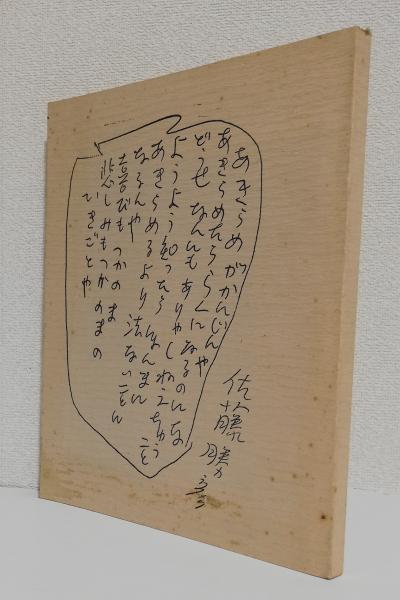 あきらめがかんじんや
あきらめたららくになるのにな
どうせなんにもありゃしねえちゅうこと
ようよう知ったらほんまに
あきらめるより法ないことん
なるんや
喜びもつかのま
悲しみもつかのまの
できごとや
佐藤勝彦